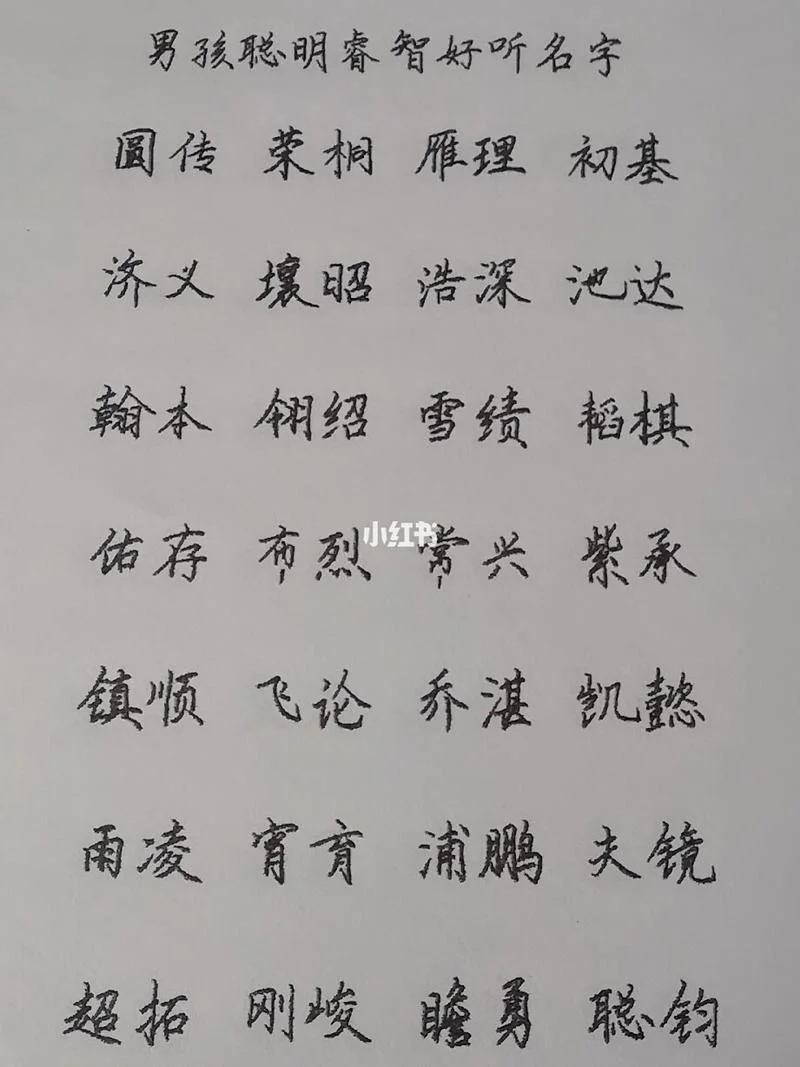 男孩聪明睿智好听名字
圆传 荣桐 雁理 初基
济义 壤昭 浩深 池达
翰本 翎绍 雪绩 韬棋
佑存 布烈 常兴 紫承
小红书
镇顺 飞论 乔湛 凯懿
雨凌 宵育 浦鹏 夫镜
超拓 刚峻 瞻勇 聪钧